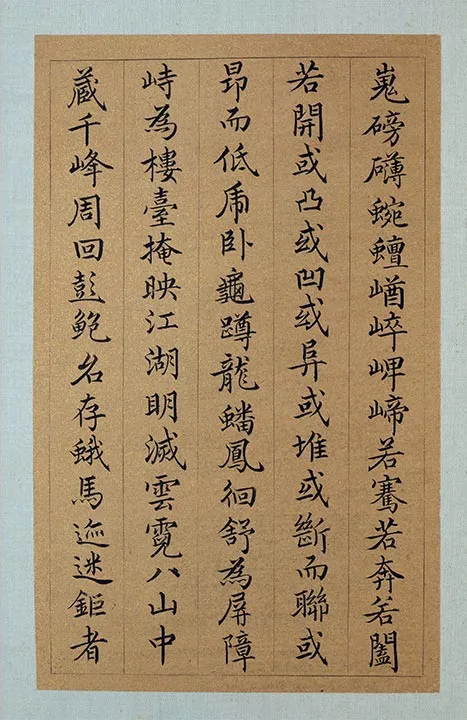 嵬磅礴蜿蟺崷崪崥崹若騫若奔若闔
若開或凸或凹或阜或堆或斷而聯或
昂而低乕卧龜蹲龍蟠鳳徊舒為屏障
峙為樓臺掩映江湖眀滅雲霓八山中
藏千峰周回彭鮑名存蛾馬迹迷鉅者